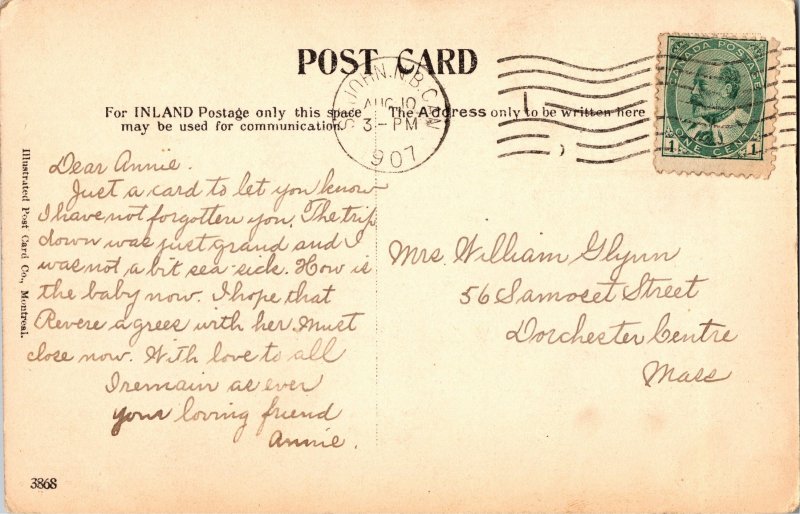 POST CARD
CANADA POSTAGE
1 ONE CENT 1
ST. JOHN. N.B. CAN.
AUG 10
3 - PM
1907
For INLAND Postage only this space
may be used for communication.
The Address only to be written here
Illustrated Post Card Co., Montreal.
Dear Annie.
Just a card to let you know
I have not forgotten you. The trip
down was just grand and I
was not a bit sea-sick. How is
the baby now. I hope that
Revere agrees with her. Must
close now. With love to all
I remain as ever
your loving friend
Annie.
Mrs. William Glynn
56 Samoset Street
Dorchester Centre
Mass
3868